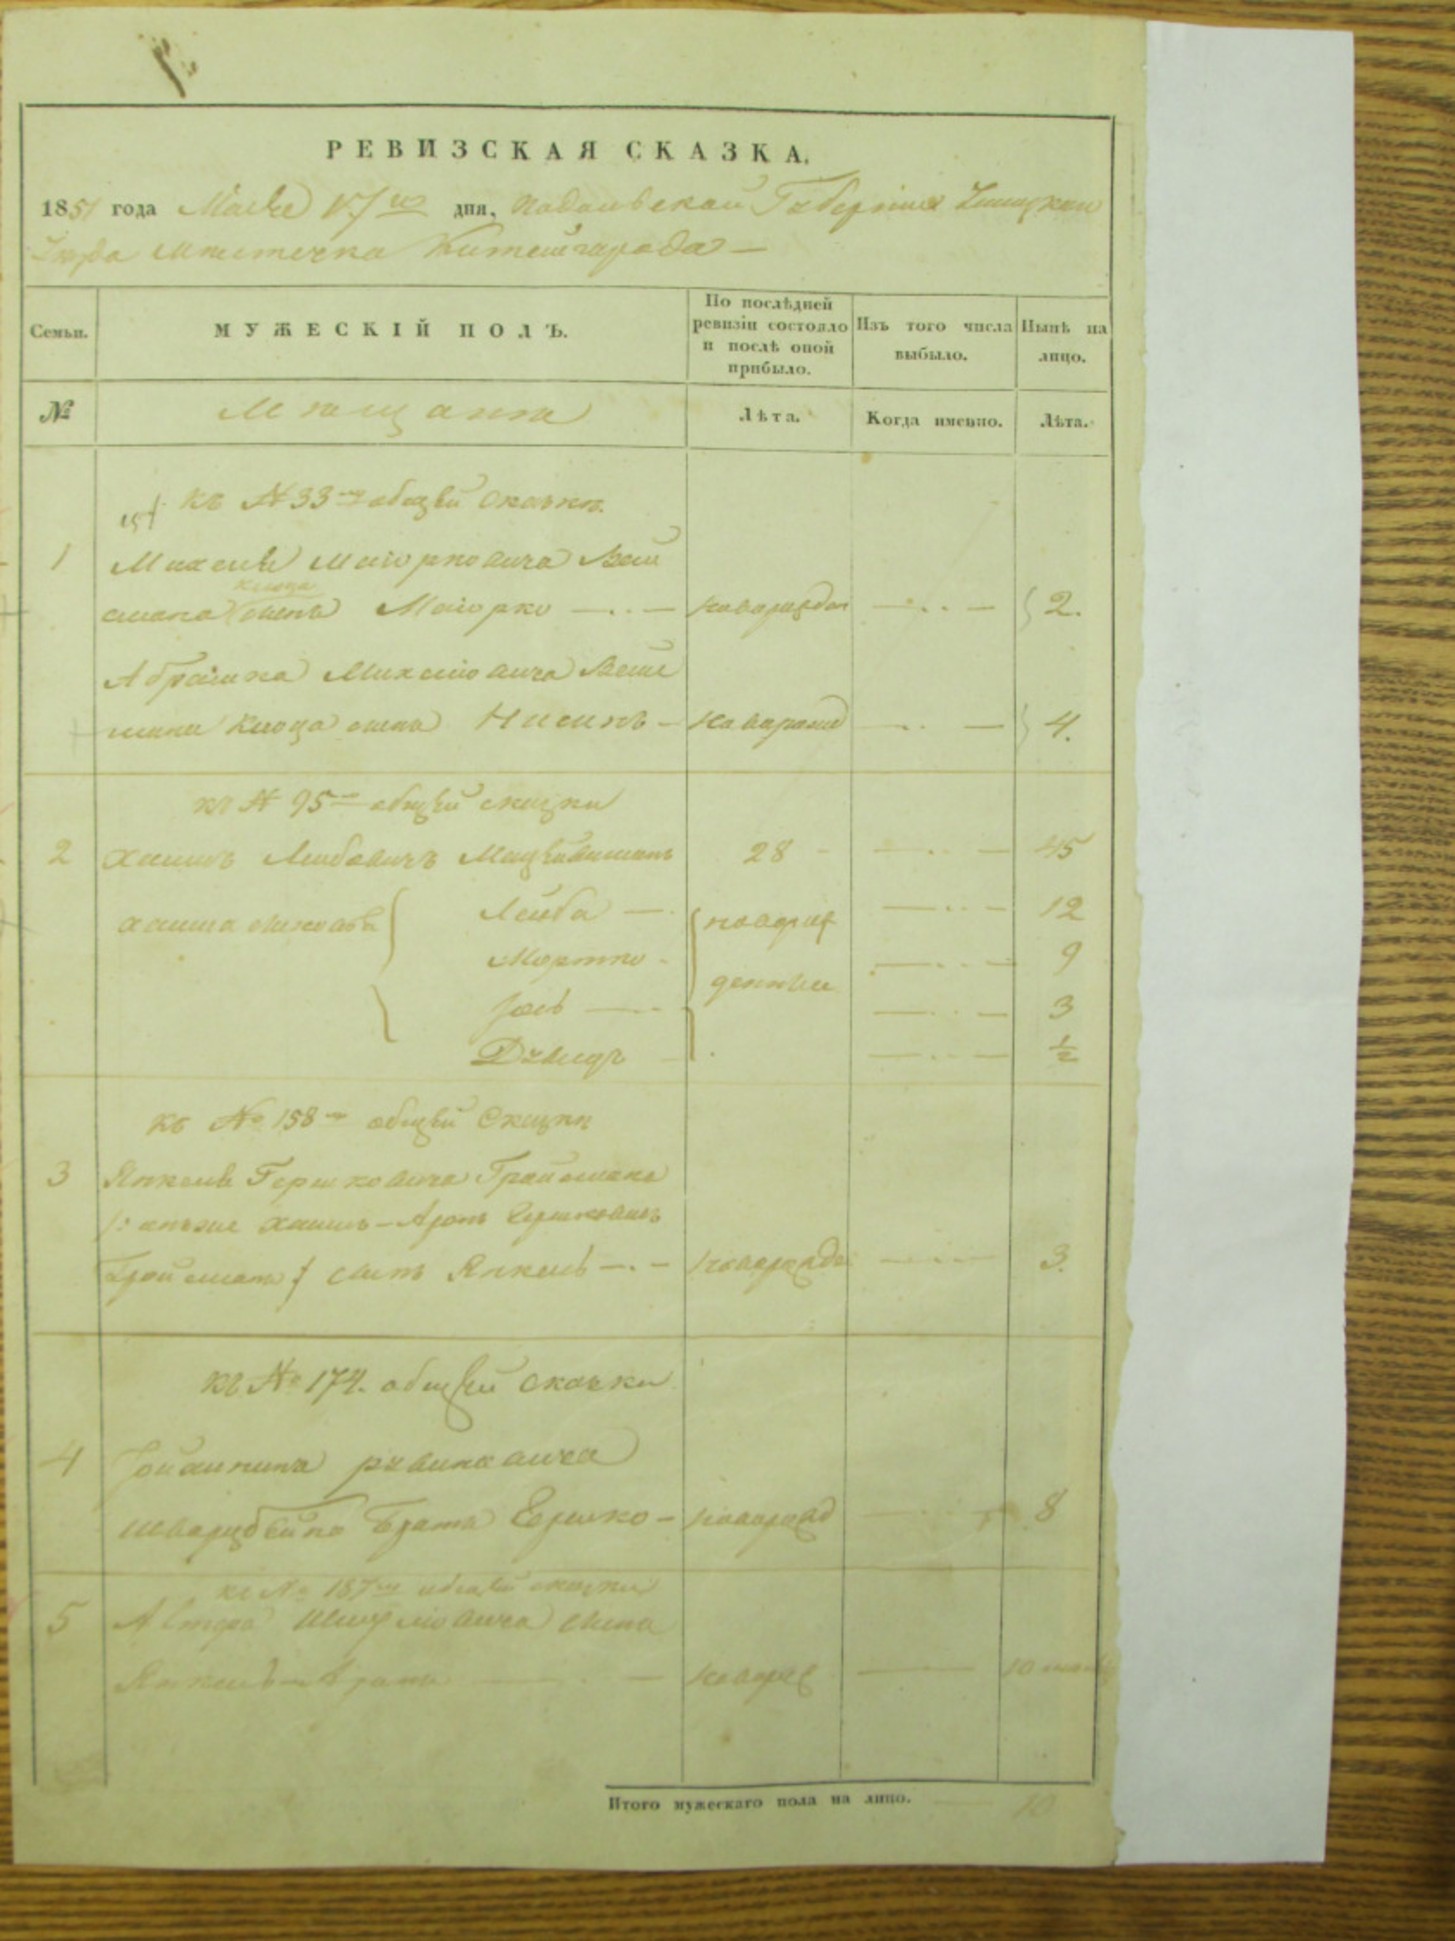 РЕВИЗСКАЯ СКАЗКА.
1851 года Маия 17го дня, Подольской Губернии Ушицкаго
Уезда местечка Китайгорода —
Семьи. МУЖЕСКІЙ ПОЛЪ. По послѣдней ревизіи состояло и послѣ оной прибыло. Изъ того числа выбыло. Нынѣ на лицо.
№ Мещане Лѣта. Когда именно. Лѣта.
къ № 33му общей сказки
1 Михеля Маіорковича Вай
смана сынъ Маіорко — новорожден — 2.
Абрамка Михелiовича Вай
смана сынъ Нисинъ — новорожд — 4.
къ № 95 общей сказки
2 Хаимъ Лейбовичъ 28 — 45
Хаима сыновья Лейба — новорож 12
Мортко - 9
денные
Іось — 3
Давидъ 1/2
къ № 158му общей сказки
3 Янкеля Гершковича Гройсмана
Хаимъ-Аронъ Гершковичъ
Гройсманъ сынъ Янкель — новорожде — 3.
къ № 174. общей сказки
4 Рувинковича
Шварцбейна братъ Гершко — новорожд — 8
къ № 187му общей сказки
5 Альтера сына
Янкеля братъ — новорож — 10
Итого мужескаго пола на лицо. — 10